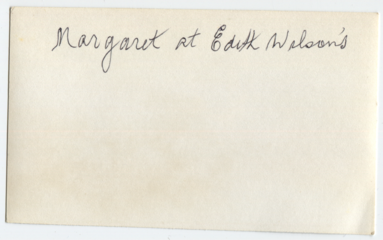 Margaret at Edith Wilson's